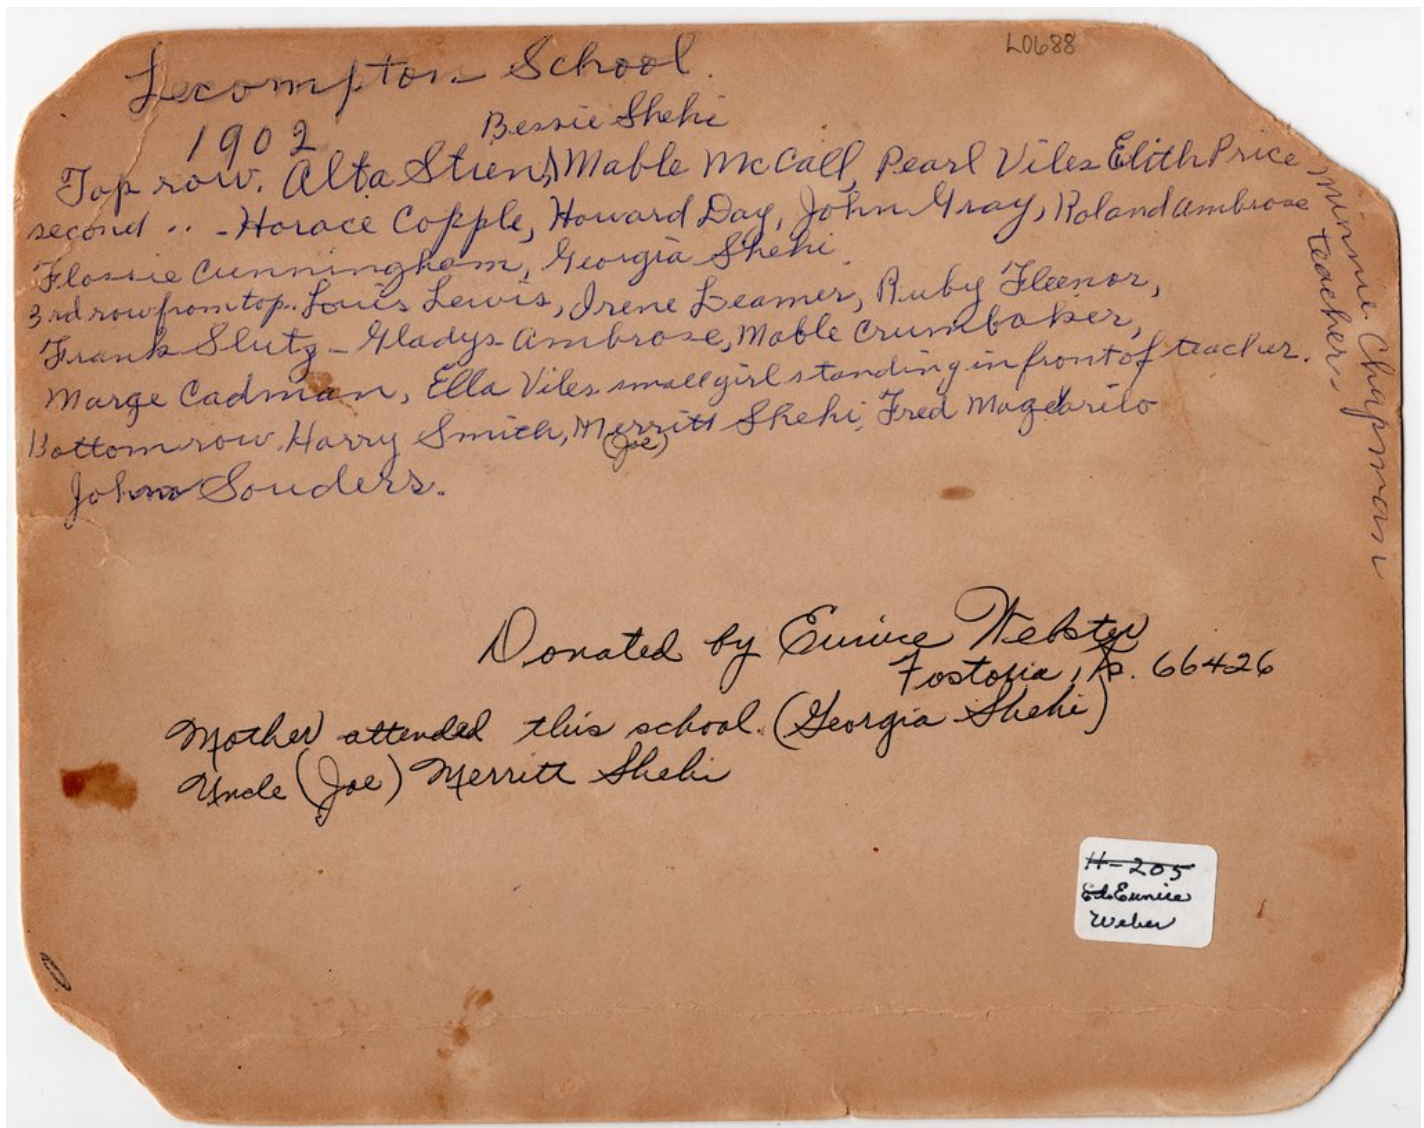 L0688
Lecompton School.
1902
Bessie Shehi
Top row. Alta Stien, Mable McCall, Pearl Viles Elith Price
second .. - Horace Copple, Howard Day, John Gray, Roland Ambrose
Flossie Cunningham, Georgia Shehi
3rd row from top. Louis Lewis, Irene Leamer, Ruby Fleenor,
Frank Slutz - Gladys Ambrose, Mable Crumbaker,
Marge Cadman, Ella Viles small girl standing in front of teacher.
Bottom row. Harry Smith, Merritt Shehi, Fred
(Joe)
John Souders.
Minnie Chapman
teacher
Donated by Eunice Webster
Fostoria, Ks. 66426
Mother attended this school. (Georgia Shehi)
Uncle (Joe) Merritt Shehi
H-205
Ed. Eunice
Weber